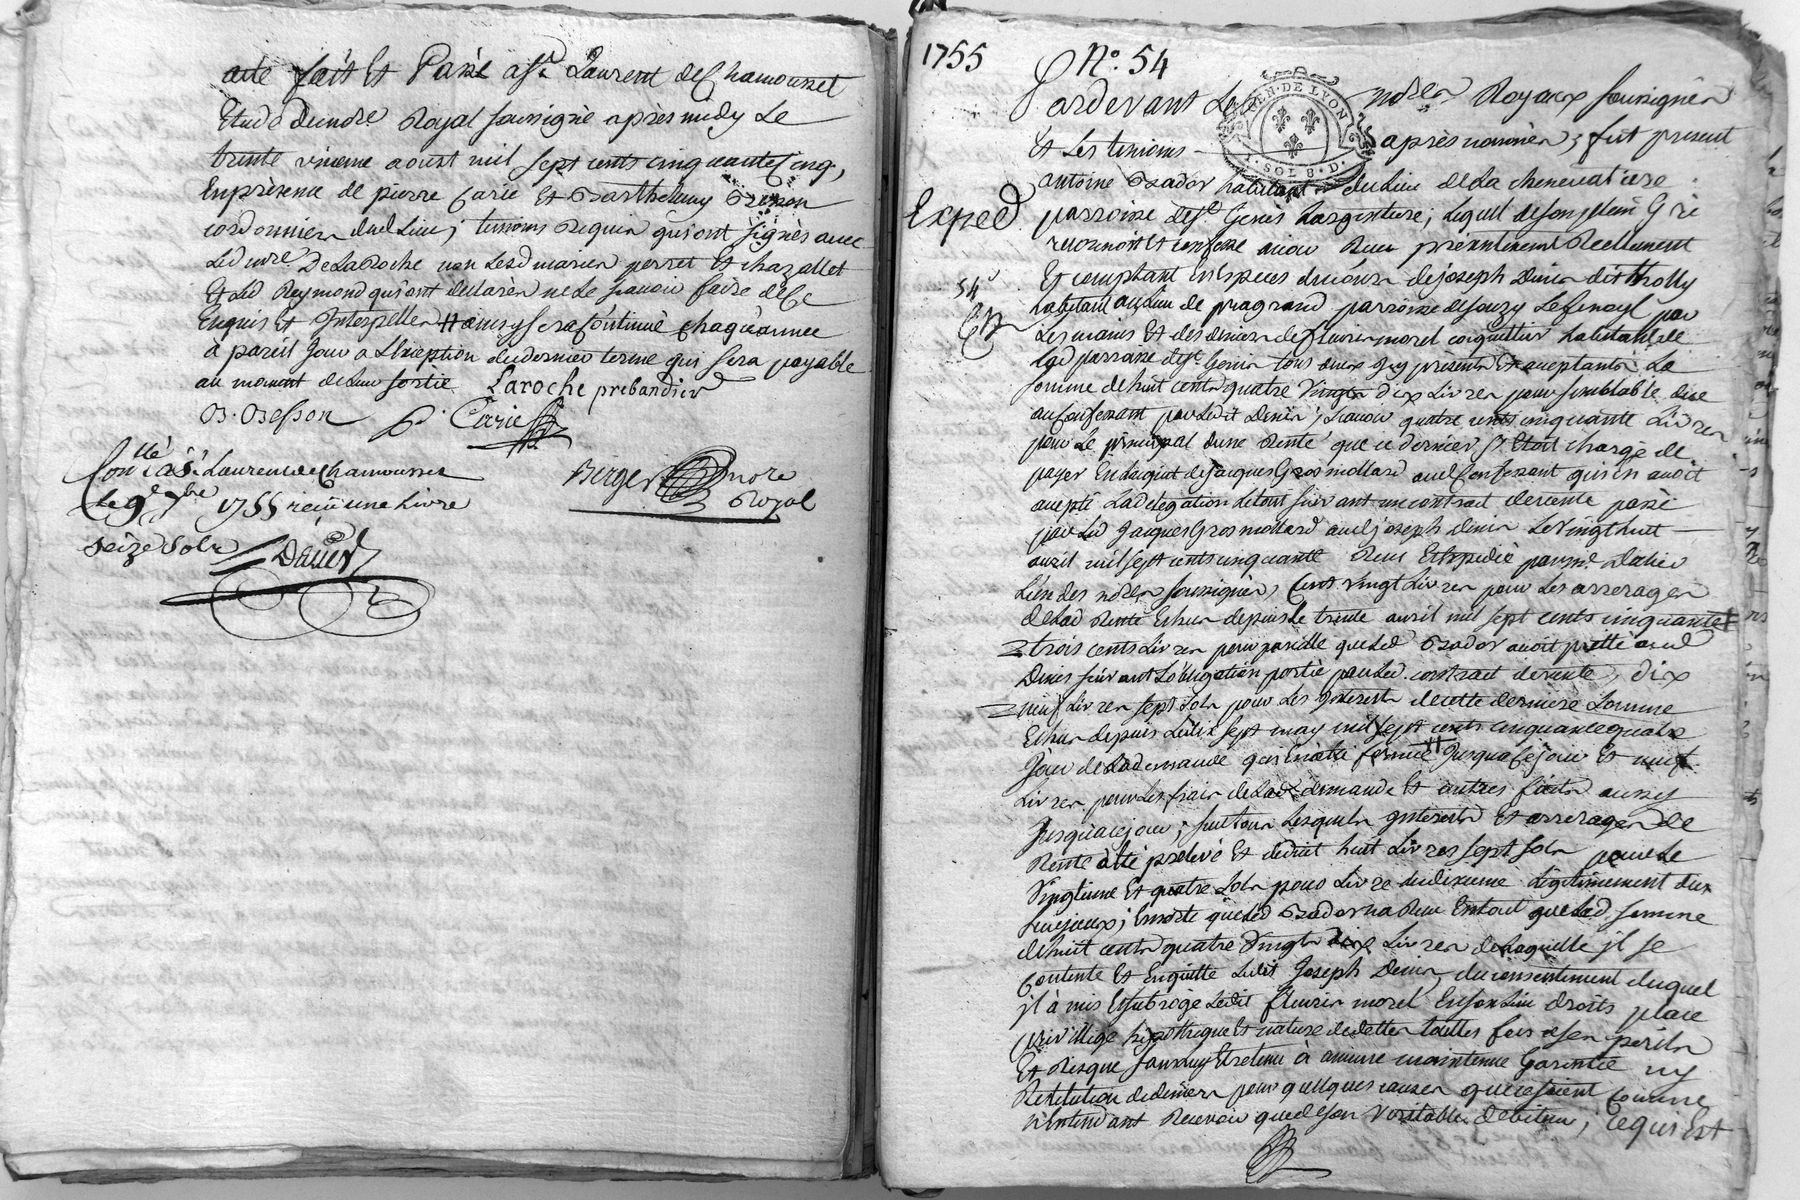 acte fait et Passé a St. Laurent de Chamousset
Etude dunore. Royal soussigné après midy Le
trente unieme aoust mil sept cents cinquante Cinq,
En présence de pierre Carie Et Barthelemy Besson
cordonnier dud Lieu, temoins Requis qu'ont signés avec
Led nore. De La Roche non Lesd marier perret Et chazallet
Et Led Reymond qu'ont declarés ne Le scavoir faire de Ce
Enquis Et Interpeller # ainsy sera Continué chaque année
a pareil jour a L'Exception du dernier terme qui sera payable
au moment de Leur sortie Laroche prebandier
B. Besson P. Carie
Conllé à St. Laurent de Chamousset
Le 9e 7bre 1755 reçu une Livre
seize sols
Berger nore
Royal
1755 No. 54
Pardevant Les nores Royaux soussignés
Et Les temoins - après nommés, fut present
GEN. DE LYON
SOL 8. D.
antoine Bador habitant du Lieu de La cheneuatiere
parroisse de St. Genis Largentiere, Lequel de son plein Gré
reconnoit et confesse avoir Reçu présentement Reellement
Exped
Et comptant en Especes du cours de joseph Denis dit tholly
habitant au Lieu de pragrand parroisse de souzy Largentiere par
54
Les mains Et des deniers de fleurie morel coquettier habitant de
Lad parroisse de St. Genis tous deux jcy présents Et acceptants La
somme de huit cents quatre Vingts dix Livres pour semblable due
au Confessant par Ledit Denis, scavoir quatre cents cinquante Livres
pour Le principal d'une Rente que ce dernier s'Etoit chargé de
payer En Laquit de jacques Gros mollard aud Confessant qui en avoit
accepté La delegation Le tout suivant un contrat de vente passé
par Led Jacques Gros mollard aud joseph denis Le vingt huit
avril mil sept cents cinquante Reçu Et Expedié par me. Dalier
L'un des nores soussignés, Cent vingt Livres pour Les arrerages
de Lad Rente Echus depuis Le trente avril mil sept cents cinquante #
trois cents Livres pour pareille que Led Bador avoit pretté aud
Denis suivant L'obligation portée par Led. contract de vente, dix
neuf Livres sept sols pour Les Interests de cette derniere Somme
Echus depuis Le dix sept may mil sept cents cinquante quatre
jour de La demande qui En a été formée # jusqua Ce jour Et neuf
Livres pour Les frais de Lad demande Et autres faits aussy
jusqu'a ce jour; sur tous Lesquels jnterests Et arrerages de
Rente a été prelevé Et deduit huit Livres sept sols pour Le
Vingtieme Et quatre sols pour Livre du dixieme Legitimement dus
En sorte que Led Bador n'a Reçu En tout que Lad. somme
de huit cents quatre Vingts dix Livres de Laquelle jl se
Contente Et En quitte Ledit Joseph Denis du consentement duquel
jl à mis Et subrogé Ledit fleurie morel En son Lieu droits place
privillege hypotheque Et nature de dette touttes fois a ses perils
Et Risque sans luy Etre tenu à aucune maintenue Garentie ny
Restitution de deniers pour quelques causes que ce soient Comme
n'Entendant Recevoir que de son Veritable debiteur, ce qui Est